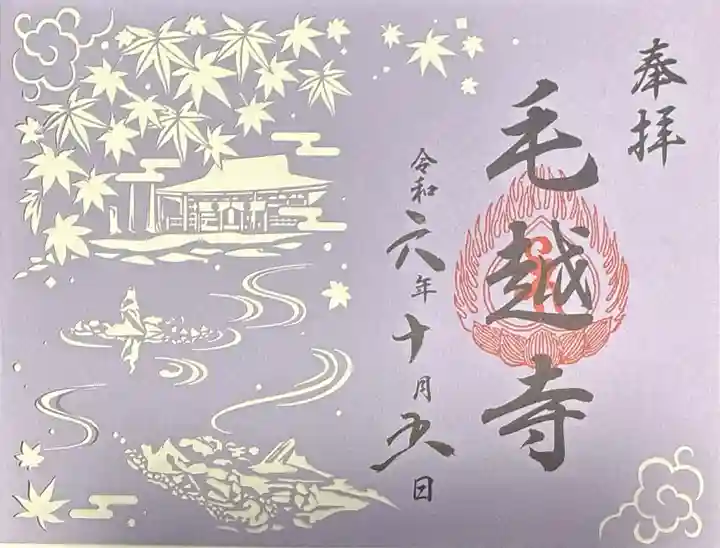 奉拝
毛越寺
令和六年十月五日